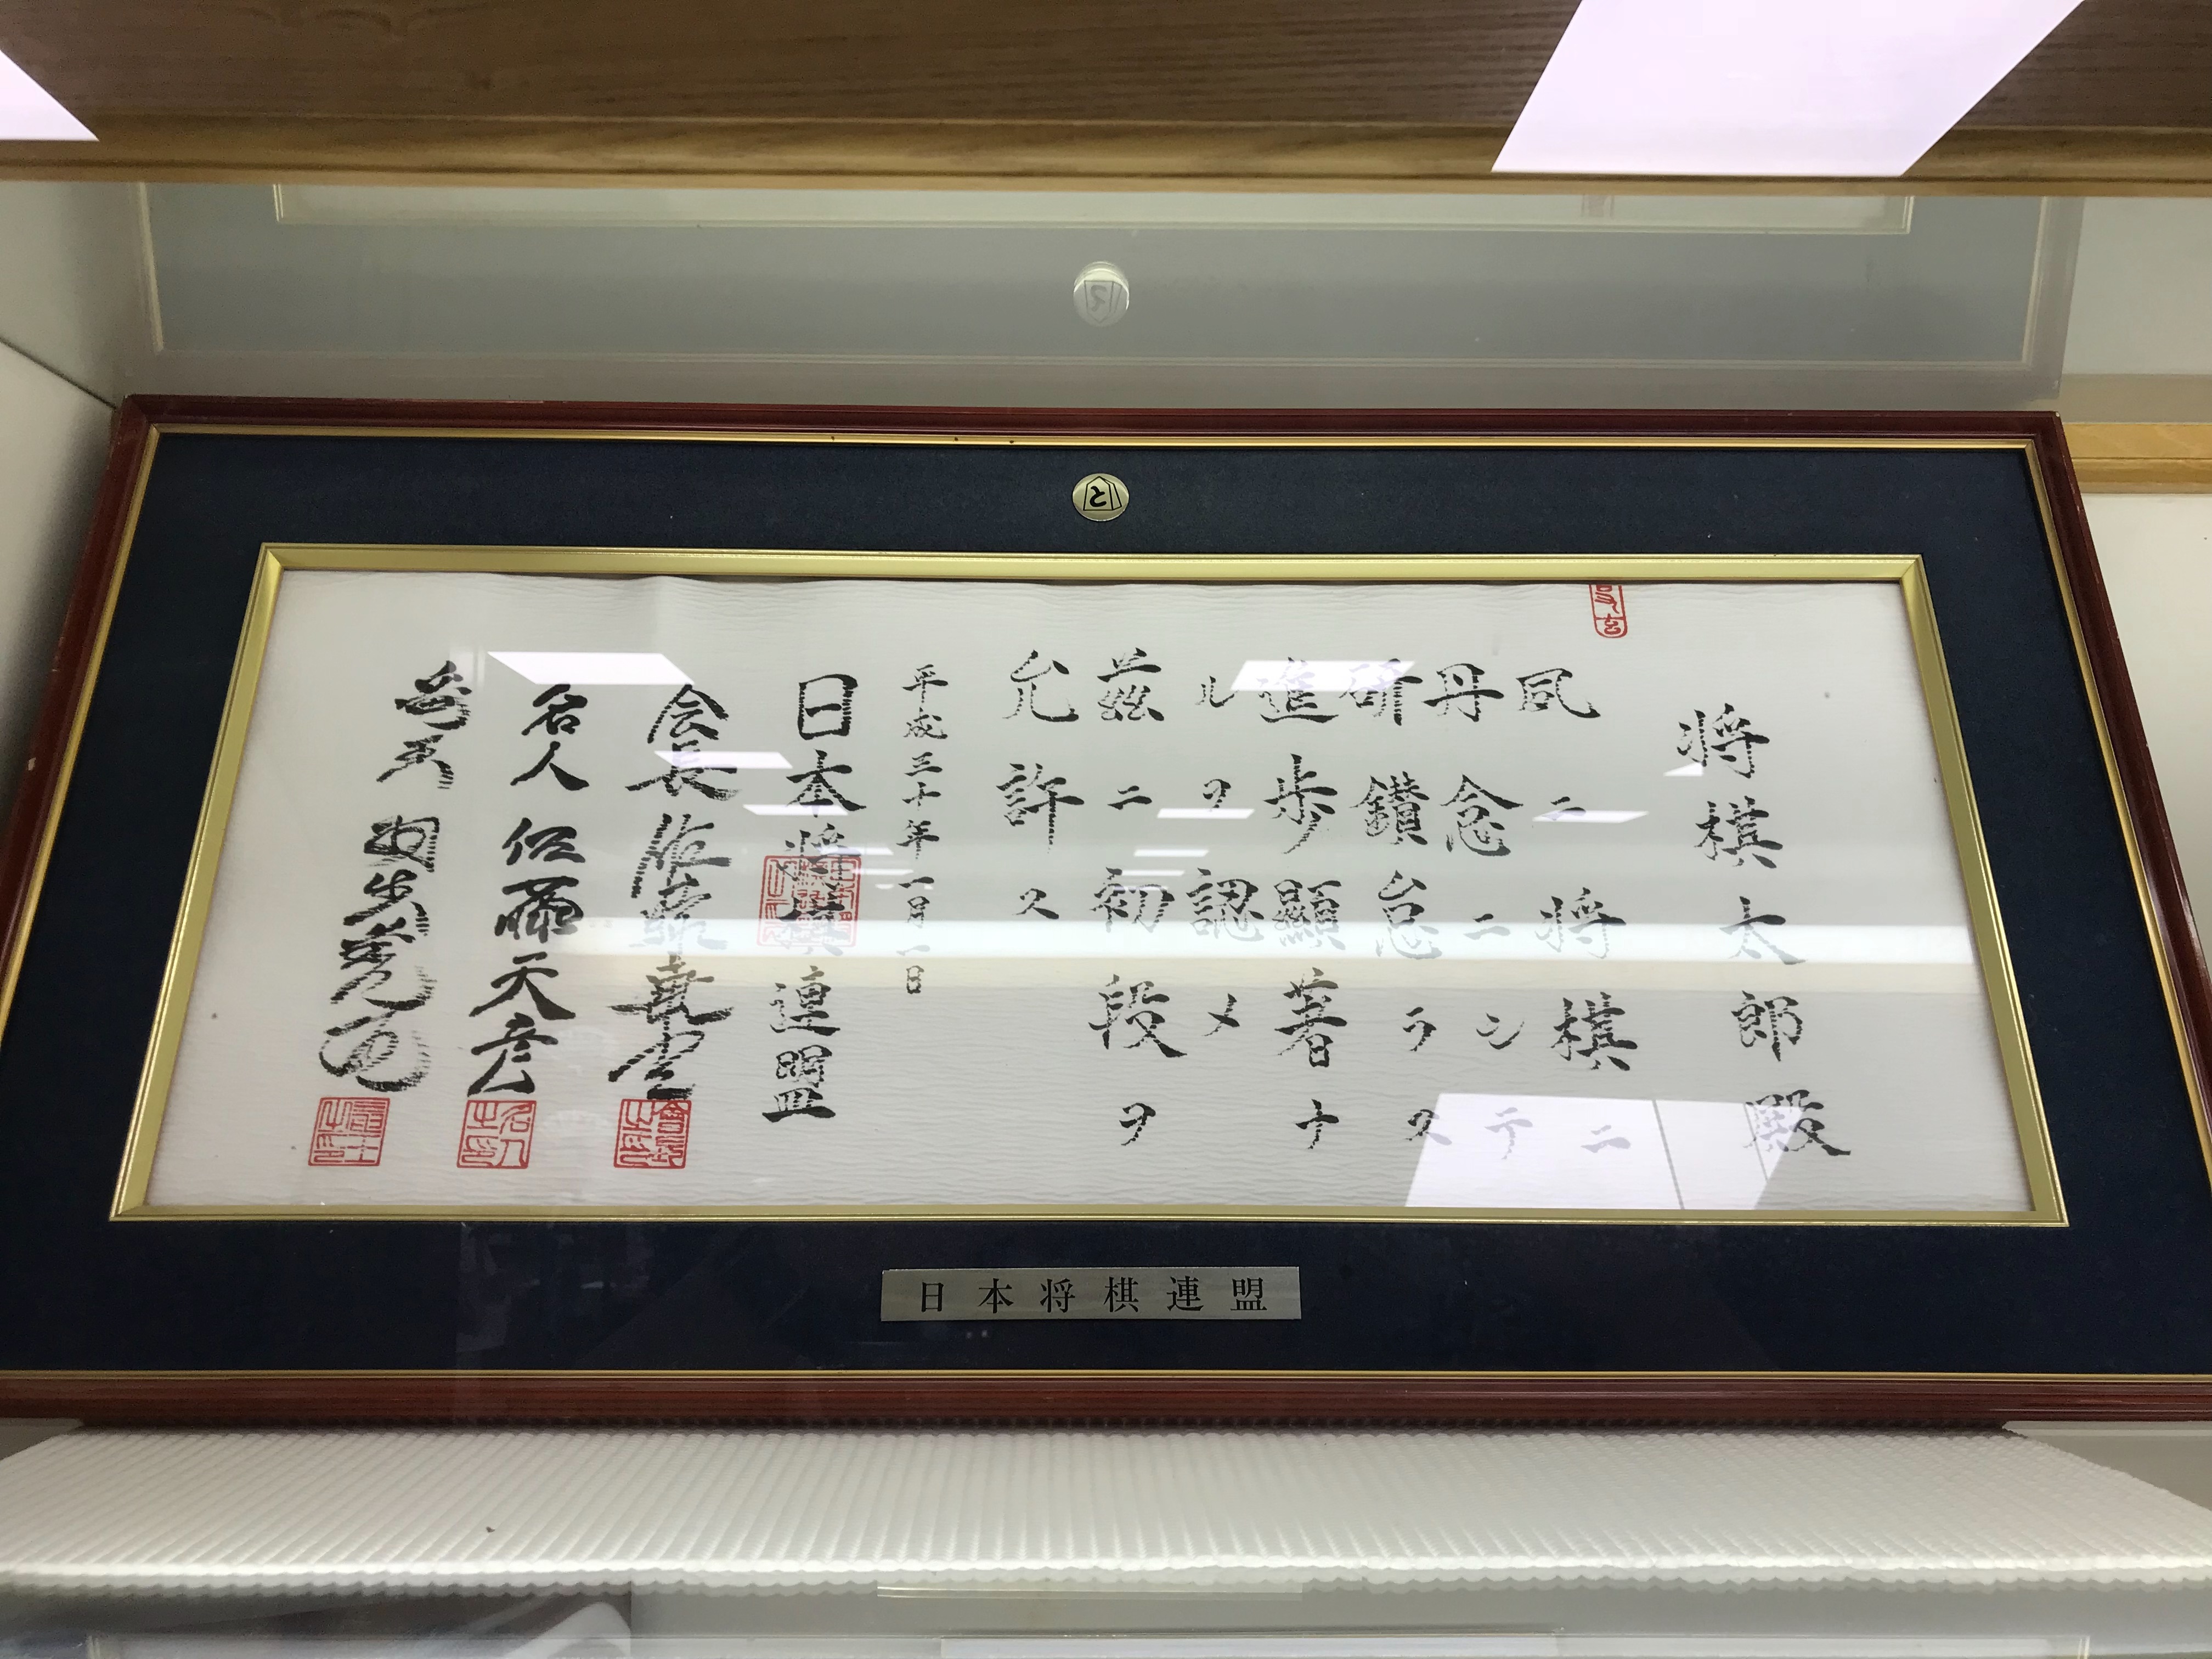 将棋太郎殿
夙ニ将棋ニ
丹念ニシテ
研鑚怠ラス
進歩顕著ナ
ルヲ認メ
茲ニ初段ヲ
允許ス
平成三十年一月一日
日本将棋連盟
会長 佐藤康光
名人 佐藤天彦
竜王 羽生善治
日本将棋連盟
と